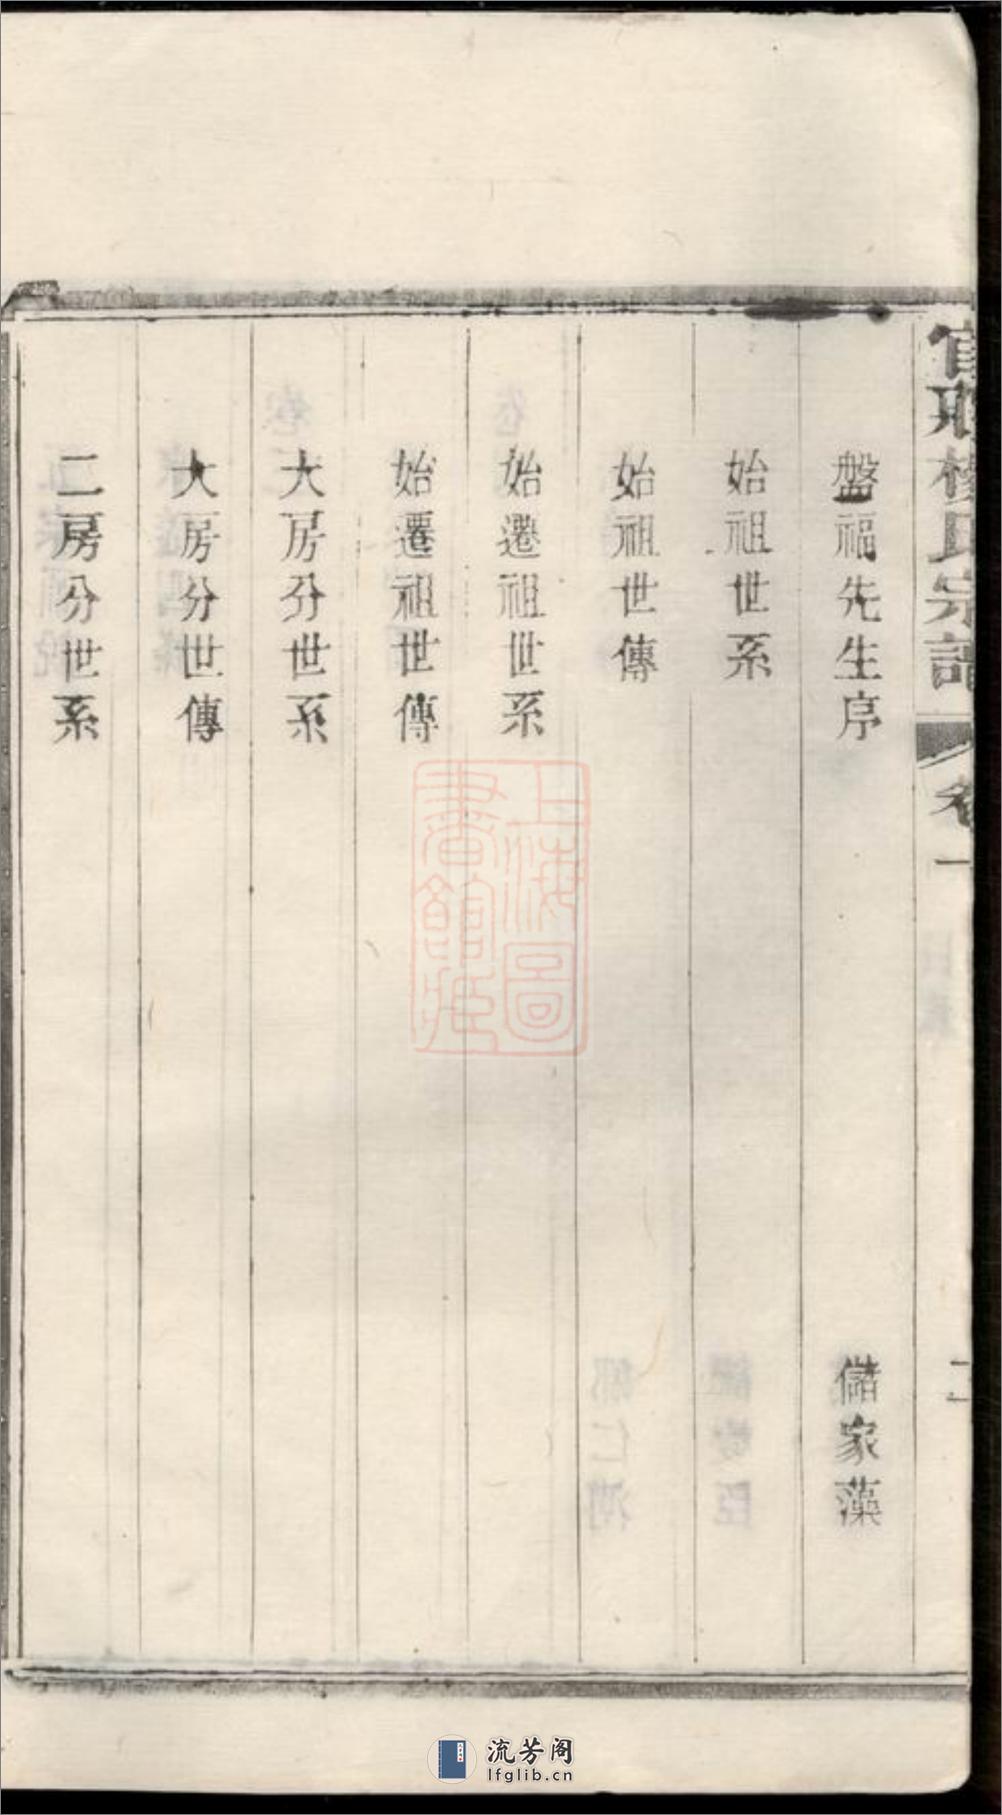 宗譜
卷一
二
盤福先生序 儲家藻
始祖世系
始祖世傳
始遷祖世系
始遷祖世傳
大房分世系
大房分世傳
二房分世系
上海圖書館藏
流芳阁
lfglib.cn